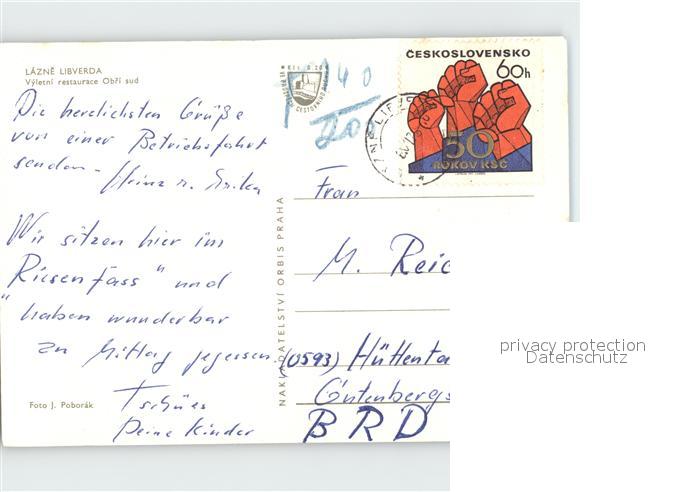 LÁZNĚ LIBVERDA
Výletní restaurace Obří sud
Die herzlichsten Grüße
von einer Betriebsfahrt
senden
Heinz u. Erika
Wir sitzen hier im
"Riesenfass" und
haben wunderbar
zu Mittag gegessen
Tschües
Deine Kinder
Foto J. Poborák
NAKLADATELSTVÍ ORBIS PRAHA
40
200
ČESKOSLOVENSKO
60h
50
ROKOV KSČ
Frau
M. Reic
(0593) Hüttenta
Gutenbergs
BRD
privacy protection
Datenschutz